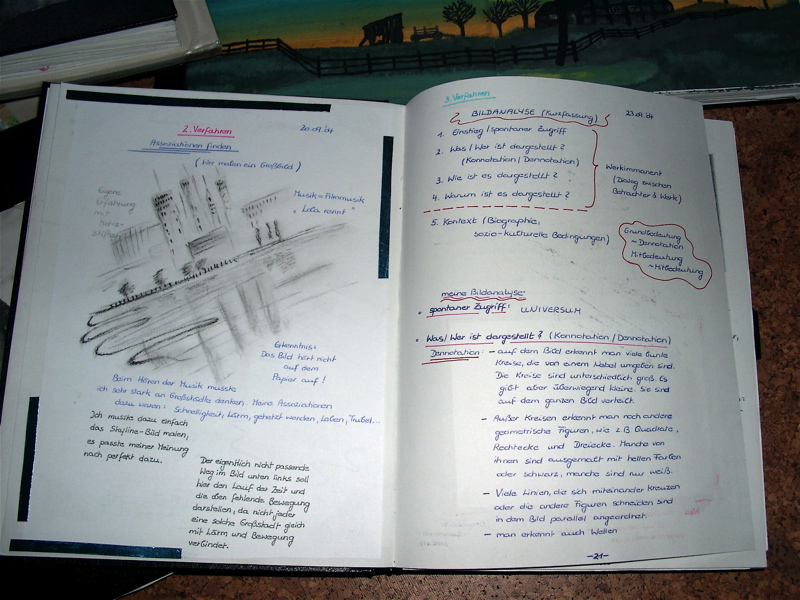 2. Verfahren
20.09.04
Assoziationen finden
(Wir malen ein Großbild)
Eigene
Erfahrung
mit
Musik = Filmmusik
"Lola rennt"
Erkenntnis:
Das Bild hört nicht
auf dem
Papier auf!
Beim Hören der Musik musste
ich sehr stark an Großstädte denken. Meine Assoziationen
dazu waren: Schnelligkeit, Lärm, gehetzt werden, Leben, Trubel...
Ich musste dazu einfach
das Skyline-Bild malen,
es passte meiner Meinung
nach perfekt dazu.
Der eigentlich nicht passende
Weg im Bild unten links soll
hier den Lauf der Zeit und
die eben fehlende Bewegung
darstellen, da nicht jeder
eine solche Großstadt gleich
mit Lärm und Bewegung
verbindet.
3. Verfahren
BILDANALYSE (Kurzfassung)
23.09.04
1. Einstieg / spontaner Zugriff
2. Was / Wer ist dargestellt?
(Konnotation / Dennotation)
3. Wie ist es dargestellt?
4. Warum ist es dargestellt?
Werkimmanent
(Dialog zwischen
Betrachter & Werk)
5. Kontext (Biographie,
sozio-kulturelle Bedingungen)
Grundbedeutung
~ Dennotation
Mitbedeutung
~ Mitbedeutung
meine Bildanalyse:
• spontaner Zugriff: UNIVERSUM
• Was / Wer ist dargestellt? (Konnotation / Dennotation)
Dennotation: - auf dem Bild erkennt man viele bunte
Kreise, die von einem Nebel umgeben sind.
Die Kreise sind unterschiedlich groß. Es
gibt aber überwiegend kleine. Sie sind
auf dem ganzen Bild verteilt.
- Außer Kreisen erkennt man noch andere
geometrische Figuren, wie z.B. Quadrate,
Rechtecke und Dreiecke. Manche von
ihnen sind ausgemalt mit hellen Farben
oder schwarz, manche sind nur weiß.
- Viele Linien, die sich miteinander kreuzen
oder die andere Figuren schneiden sind
in dem Bild parallel angeordnet.
- man erkennt auch Wellen
-21-